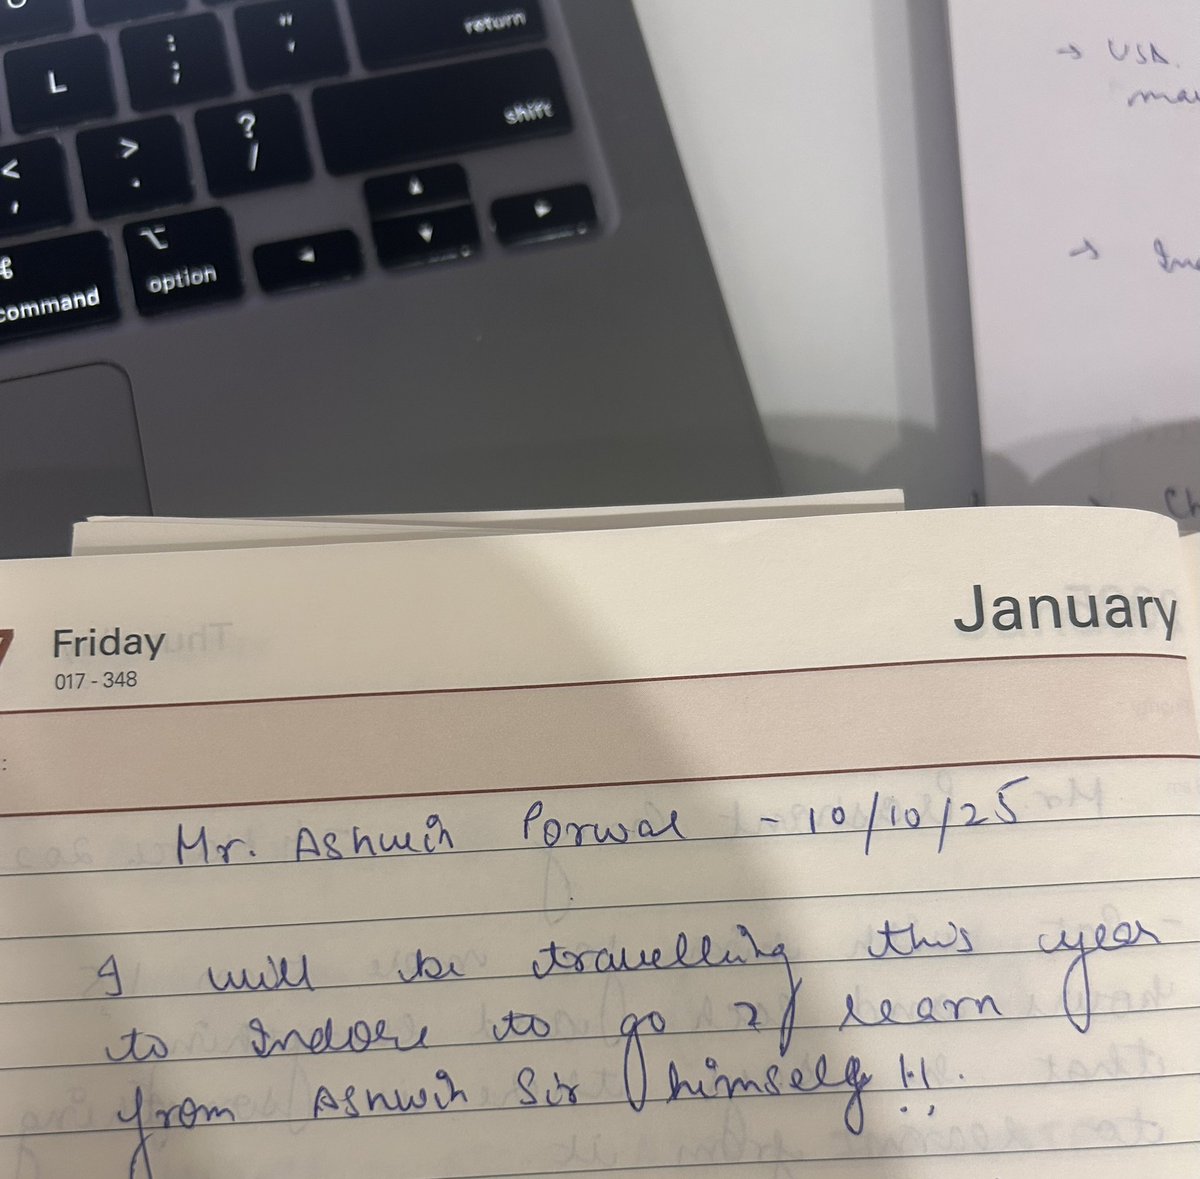 return
L
:
;
"
'
shift
<
,
>
.
?
/
command
option
→ USA.
→
Friday
017 - 348
January
Mr. Ashwin Porwal - 10/10/25
I will be travelling this year
to Indore to go & learn
from Ashwin Sir himself !!.